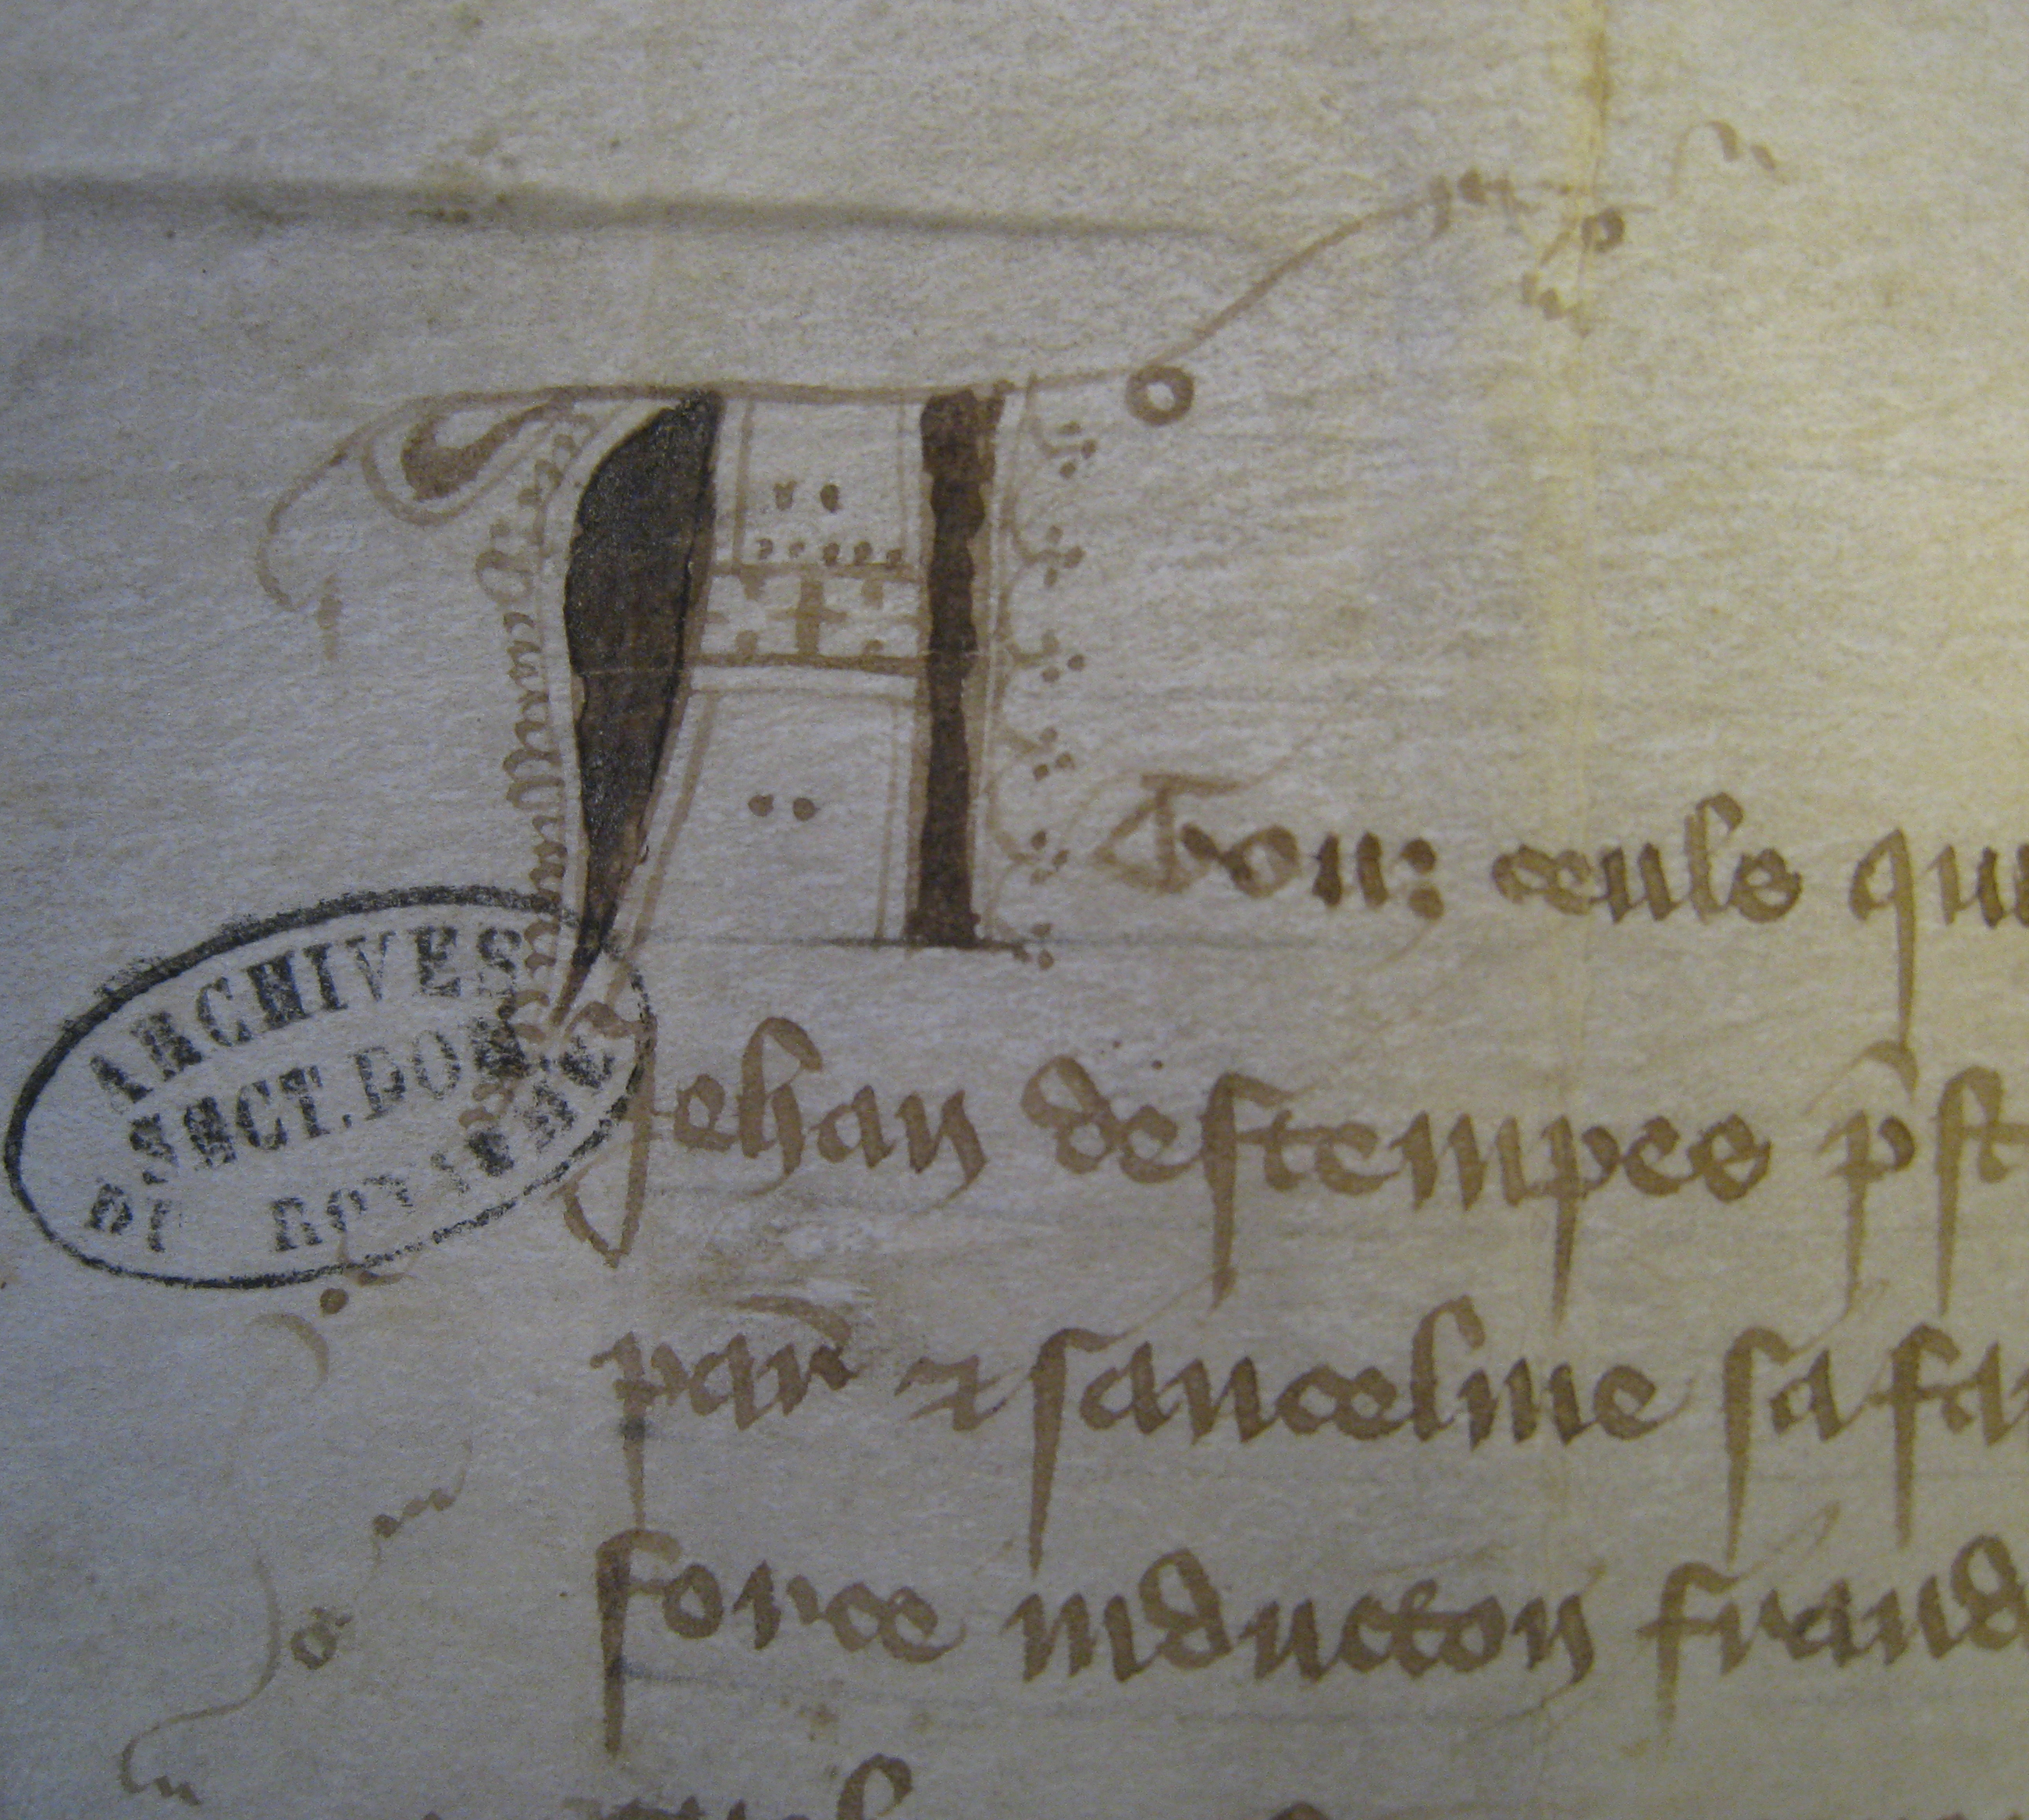 A Touz ceuls que
Jehan destempes p̄st
par̄ ⁊ Janceline sa fa
force induccion fraud
ARCHIVES
SECT. DOM
DU ROYAUME